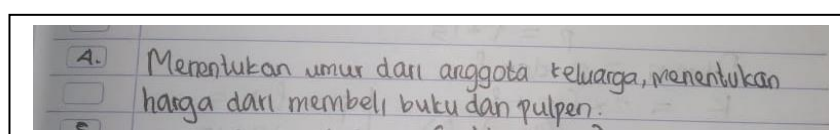 A. Menentukan umur dari anggota keluarga, menentukan
harga dari membeli buku dan pulpen.